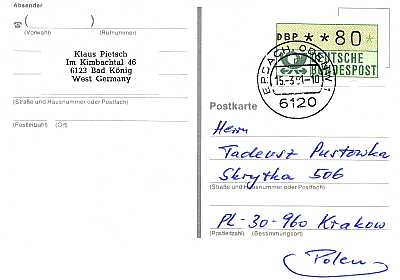 Absender
(Vorwahl) (Rufnummer)
Klaus Pietsch
Im Kimbachtal 46
6123 Bad König
West Germany
(Straße und Hausnummer oder Postfach)
(Postleitzahl) (Ort)
DBP **80
DEUTSCHE
BUNDESPOST
15.-3.91-10
6120
Postkarte
Herrn
Tadeusz Pustowka
Skrytka 506
(Straße und Hausnummer oder Postfach)
PL-30-960 Krakow
(Postleitzahl) (Bestimmungsort)
(Polen)